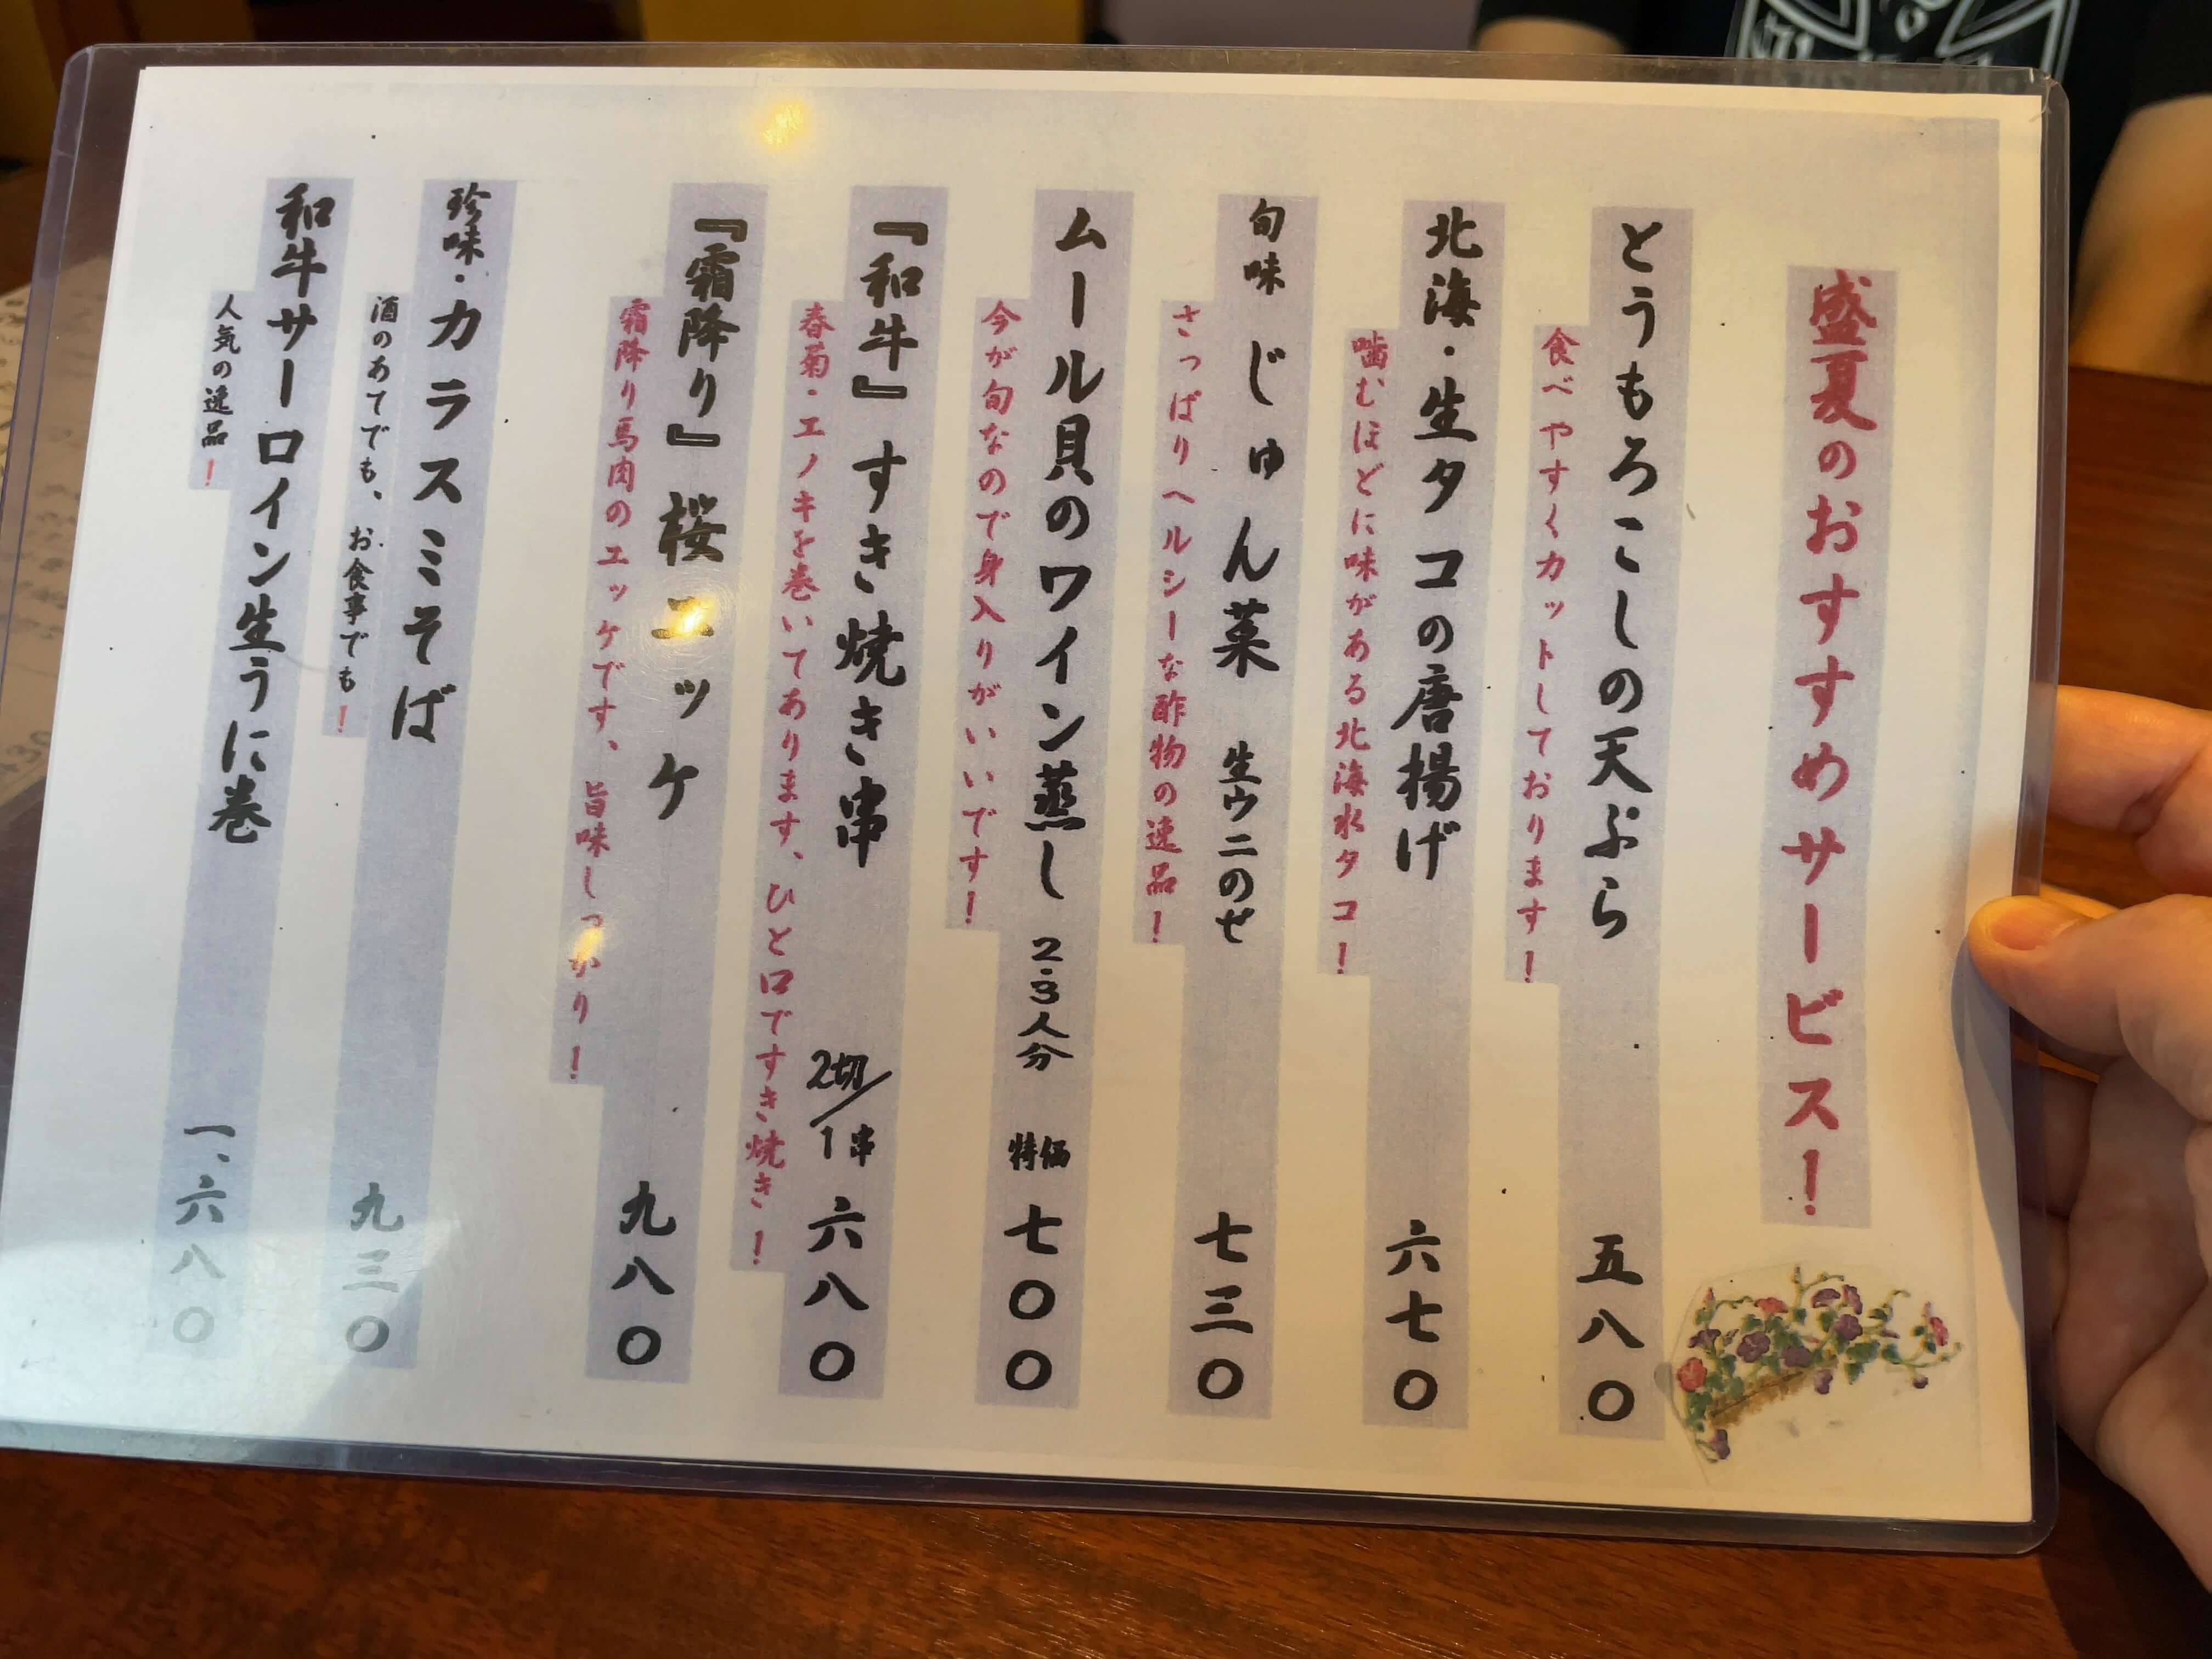 盛夏のおすすめサービス！
とうもろこしの天ぷら 五八〇
食べやすくカットしております！
北海・生タコの唐揚げ 六七〇
噛むほどに味がある北海水タコ！
旬味 じゅん菜 生ウニのせ 七三〇
さっぱりヘルシーな酢物の逸品！
ムール貝のワイン蒸し 2.3人分 特価 七〇〇
今が旬なので身入りがいいです！
『和牛』すき焼き串 2切/1串 六八〇
春菊・エノキを巻いてあります、ひと口ですき焼き！
『霜降り』桜ユッケ 九八〇
霜降り馬肉のユッケです、旨味しっかり！
珍味・カラスミそば 九三〇
酒のあてでも、お食事でも！
和牛サーロイン生うに巻 一、六八〇
人気の逸品！